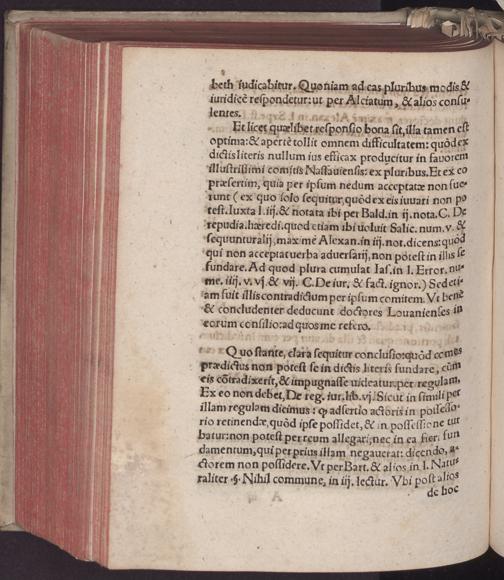 beth iudicabitur. Quoniam ad eas pluribus modis &
iuridicè respondetur: ut per Alciatum, & alios consu-
lentes.
Et licet quælibet responsio bona sit, illa tamen est
optima: & apertè tollit omnem difficultatem: quòd ex
dictis literis nullum ius efficax producitur in fauorem
illustrissimi comitis Nassauiensis: ex pluribus. Et ex eo
præsertim, quia per ipsum nedum acceptatæ non fue-
runt ( ex quo solo sequitur, quòd ex eis iuuari non po
test. Iuxta l. ij. & notata ibi per Bald. in ij. nota. C. De
repudia. hæredi. quod etiam ibi uoluit Salic. num. v. &
sequuntur alij, maximè Alexan. in iij. not. dicens: quòd
qui non acceptat uerba aduersarij, non potest in illis se
fundare. Ad quod plura cumulat Ias. in l. Error. nu-
me. iiij. v. vj. & vij. C. De iur. & fact. ignor. ) Sed eti-
am fuit illis contradictum per ipsum comitem. Vt benè
& concludenter deducunt doctores Louanienses in
eorum consilio: ad quos me refero.
Quo stante, clara sequitur conclusio: quòd comes
prædictus non potest se in dictis literis fundare, cùm
eis cōtradixerit, & impugnasse uideatur. per regulam,
Ex eo non debet, De reg. iur. lib. vj. Sicut in simili per
illam regulam dicimus: ꝙ adsertio actoris in possesso-
rio retinendæ, quòd ipse possidet, & in possessione tur
batur: non potest per reum allegari; nec in ea fieri fun
damentum, qui per prius illam negauerat: dicendo, a-
ctorem non possidere. Vt per Bart. & alios in l. Natu-
raliter §. Nihil commune, in iij. lectur. Vbi post alios
de hoc